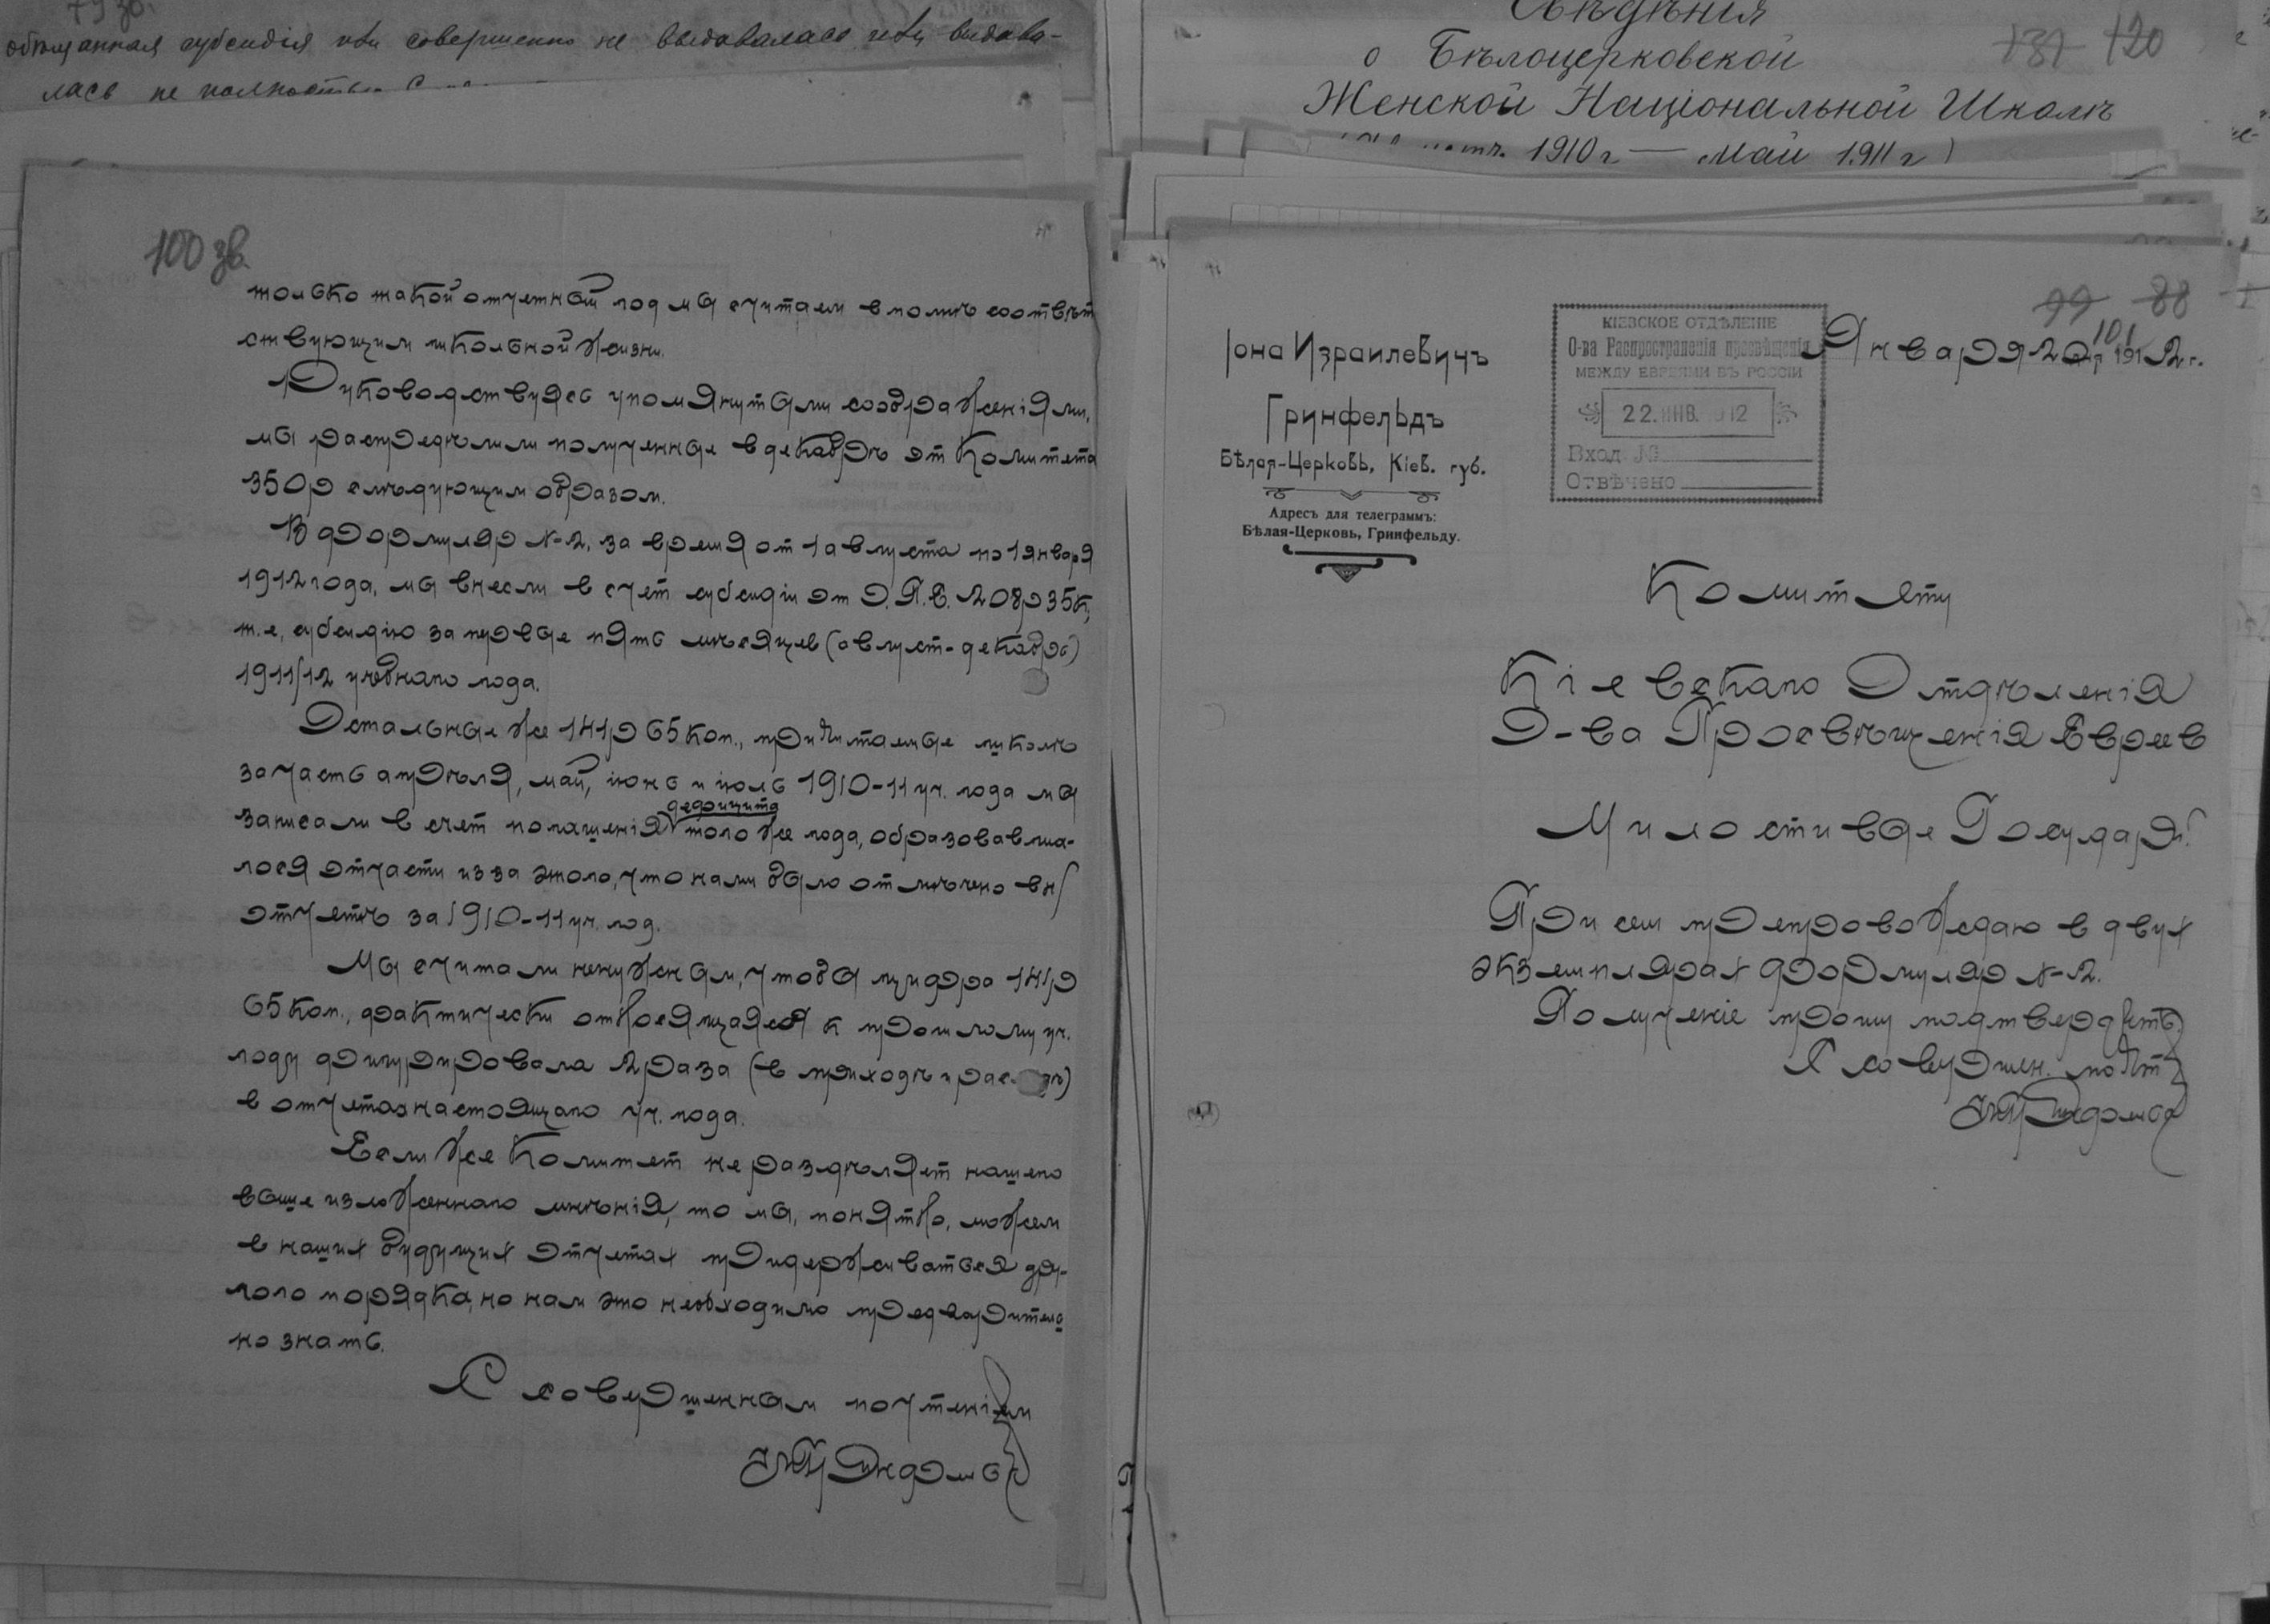 обѣщанная субсидія или совершенно не выдавалась или выдава-
лась не полностью
100 зв.
только такой отчетный год мы считаем вполнѣ соотвѣт
ствующим школьной жизни.
Руководствуясь упомянутыми соображеніями,
мы распредѣлили полученные в декабрѣ от Комитета
350р слѣдующим образом.
В формуляр №2, за время от 1 августа по 1 января
1912 года, мы внесли в счет субсидіи от О.П.Е. 208р 35к,
т.е, субсидію за первые пять мѣсяцев (август-декабрь)
1911/12 учебнаго года.
Остальные же 141р 65 коп., причитаемые школѣ
за часть апрѣля, май, іюнь и іюль 1910-11 уч. года мы
записали в счет погашенія дефицита того же года, образовавша-
гося отчасти из за этого, что нами было отмѣчено в н/
отчетѣ за 1910-11 уч. год.
Мы считали ненужным, чтобы цифра 141р
65 коп., фактически относящаяся к прошлому уч.
году фигурировала 2 раза (в приходѣ и рас дѣ)
в отчетах настоящаго уч. года.
Если же Комитет не раздѣляет нашего
выше изложеннаго мнѣнія, то мы, понятно, можем
в наших будущих отчетах придерживаться дру-
гого порядка, но нам это необходимо предваритель
но знать.
С совершенным почтеніем
Свѣдѣнія
о Бѣлоцерковской
Женской Національной Школѣ
1910 г — Май 1911 г)
131 120
99 88
101
Іона Израилевичъ
Гринфельдъ
Бѣлая-Церковь, Кіев. губ.
Адресъ для телеграммъ:
Бѣлая-Церковь, Гринфельду.
КІЕВСКОЕ ОТДѢЛЕНІЕ
О-ва Распространенія просвѣщенія
МЕЖДУ ЕВРЕЯМИ ВЪ РОССІИ
22. ЯНВ. 1912
Вход. №
Отвѣчено
Января 20 дня 1912 г.
Комитету
Кіевскаго Отдѣленія
О-ва Просвѣщенія Евреев
Милостивые Государи!
При сем препровождаю в двух
экземплярах формуляр №2.
Полученіе прошу подтвердить.
С совершен. почт